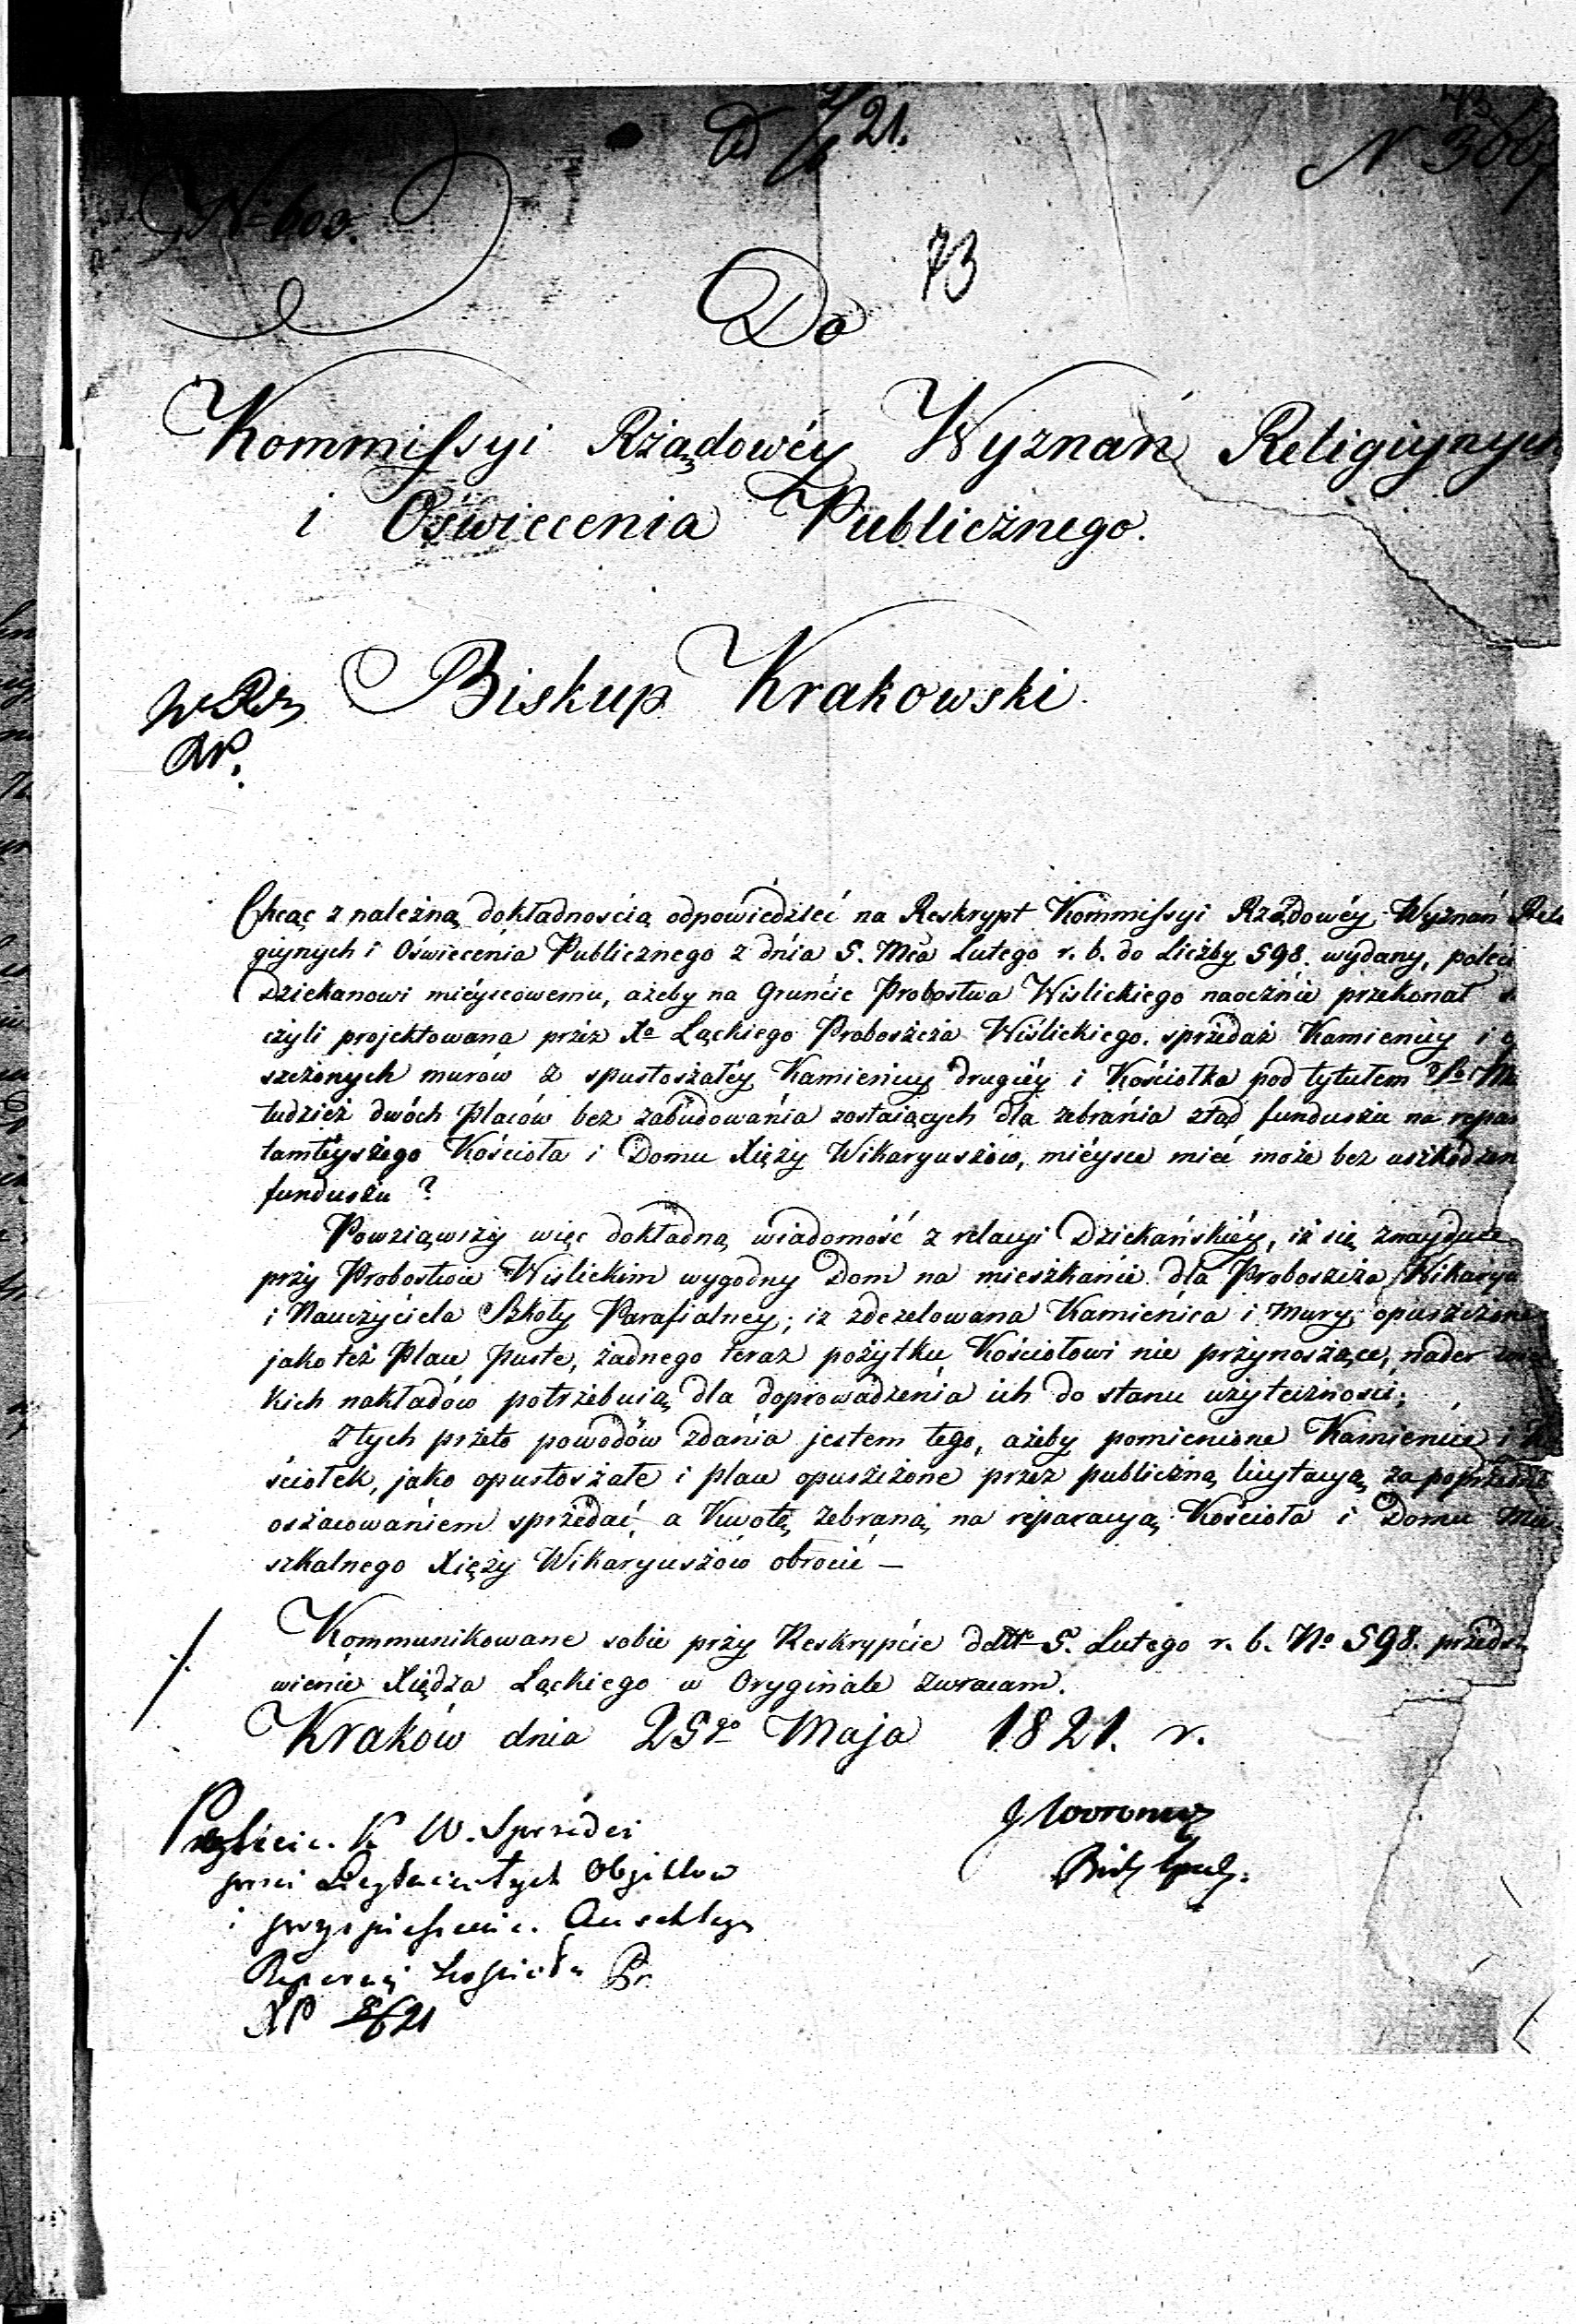 N 603.
73
Do
Kommissyi Rządowéy Wyznań Religiynych
i Oświecenia Publicznego.
Biskup Krakowski.
Chcąc z należną dokładnością odpowiedzieć na Reskrypt Kommissyi Rządowéy Wyznań Reli
giynych i Oświecenia Publicznego z dnia 5. Mca Lutego r. b. do Liczby 598. wydany, polec
Dziekanowi mieyscowemu, ażeby na Gruncie Probostwa Wislickiego naocznie przekonał
czyli projektowana przez Xa Łąckiego Proboszcza Wiślickiego sprzedaż Kamienicy i
szczonych murów z spustoszałéy Kamienicy drugiéy i Kościołka pod tytułem
tudzież dwóch Placów bez zabudowania zostaiących dla zebrania ztąd funduszu na repar
tamteyszego Kościoła i Domu Xięży Wikaryuszów, mieysce mieć może bez uszkodzen
funduszu?
Powziąwszy więc dokładną wiadomość z relacyi Dziekańskiéy, iż się znayduie
przy Probostwie Wislickim wygodny Dom na mieszkanie dla Proboszcza Wikarya
i Nauczyciela Szkoły Parafialney; iż zdezelowana Kamienica i Mury opuszczone
jako też Place puste, żadnego teraz pożytku Kościołowi nie przynoszące, nader
kich nakładów potrzebuią dla doprowadzenia ich do stanu użyteczności;
Z tych przeto powodów zdania jestem tego, ażeby pomienione Kamienice i
ściołek, jako opustoszałe i place opuszczone przez publiczną licytacyą za poprzedn
oszacowaniem sprzedać, a Kwotę zebraną na reparacyą Kościoła i Domu Mie
szkalnego Xięży Wikaryuszów obrocić —
Kommunikowane sobie przy Reskrypcie 5. Lutego r. b. No 598. przedst
wienie Xiędza Łąckiego w Oryginale zwracam.
Kraków dnia 25go Maja 1821. r.
K W. Sprzedaż
tych Objektow
i Anschlag